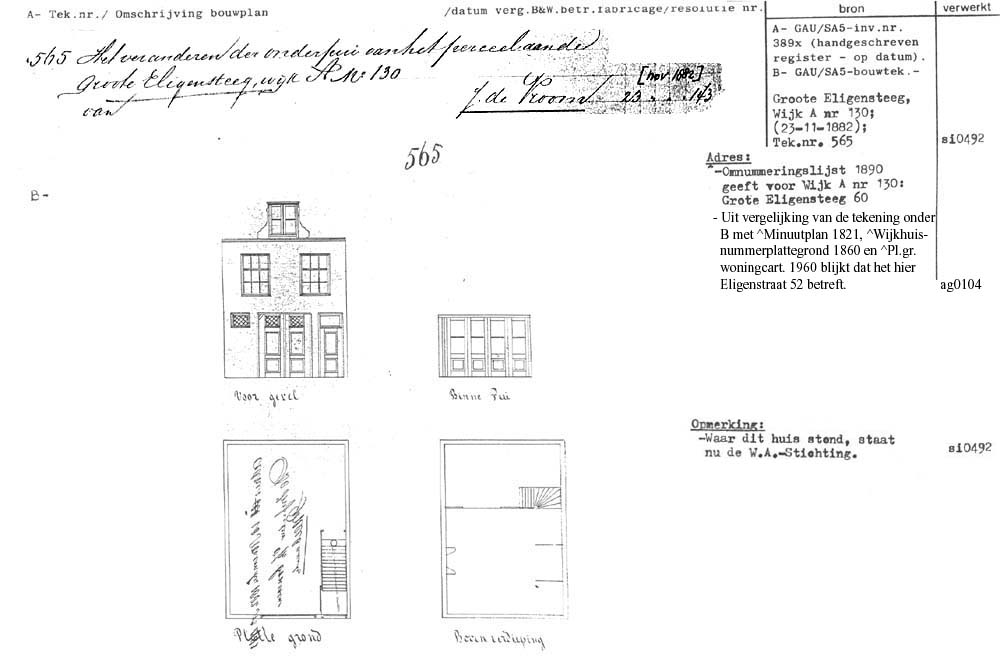 A- Tek.nr./ Omschrijving bouwplan
/datum verg.B&W.betr.fabricage/resolutie nr.
bron
verwerkt
565 Het veranderen der onderpui van het perceel aan de
Groote Eligensteeg, wijk A No 130
van
J. de Kroon
[nov 1882]
23 " " 143
A- GAU/SA5-inv.nr.
389x (handgeschreven
register - op datum).
B- GAU/SA5-bouwtek.-
Groote Eligensteeg,
Wijk A nr 130;
(23-11-1882);
Tek.nr. 565
si0492
565
Adres:
^-Omnummeringslijst 1890
geeft voor Wijk A nr 130:
Grote Eligensteeg 60
- Uit vergelijking van de tekening onder
B met ^Minuutplan 1821, ^Wijkhuis-
nummerplattegrond 1860 en ^Pl.gr.
woningcart. 1960 blijkt dat het hier
Eligenstraat 52 betreft.
ag0104
B-
Voor gevel
Binne Pui
Opmerking:
-Waar dit huis stond, staat
nu de W.A.-Stichting.
si0492
Platte grond
Boven verdieping